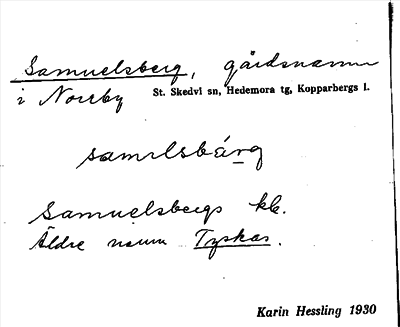 Samuelsberg, gårdsnamn
i Norrby St. Skedvi sn, Hedemora tg, Kopparbergs l.
samelsbárg
Samuelsbergs kb.
Äldre namn Tyskas.
Karin Hessling 1930